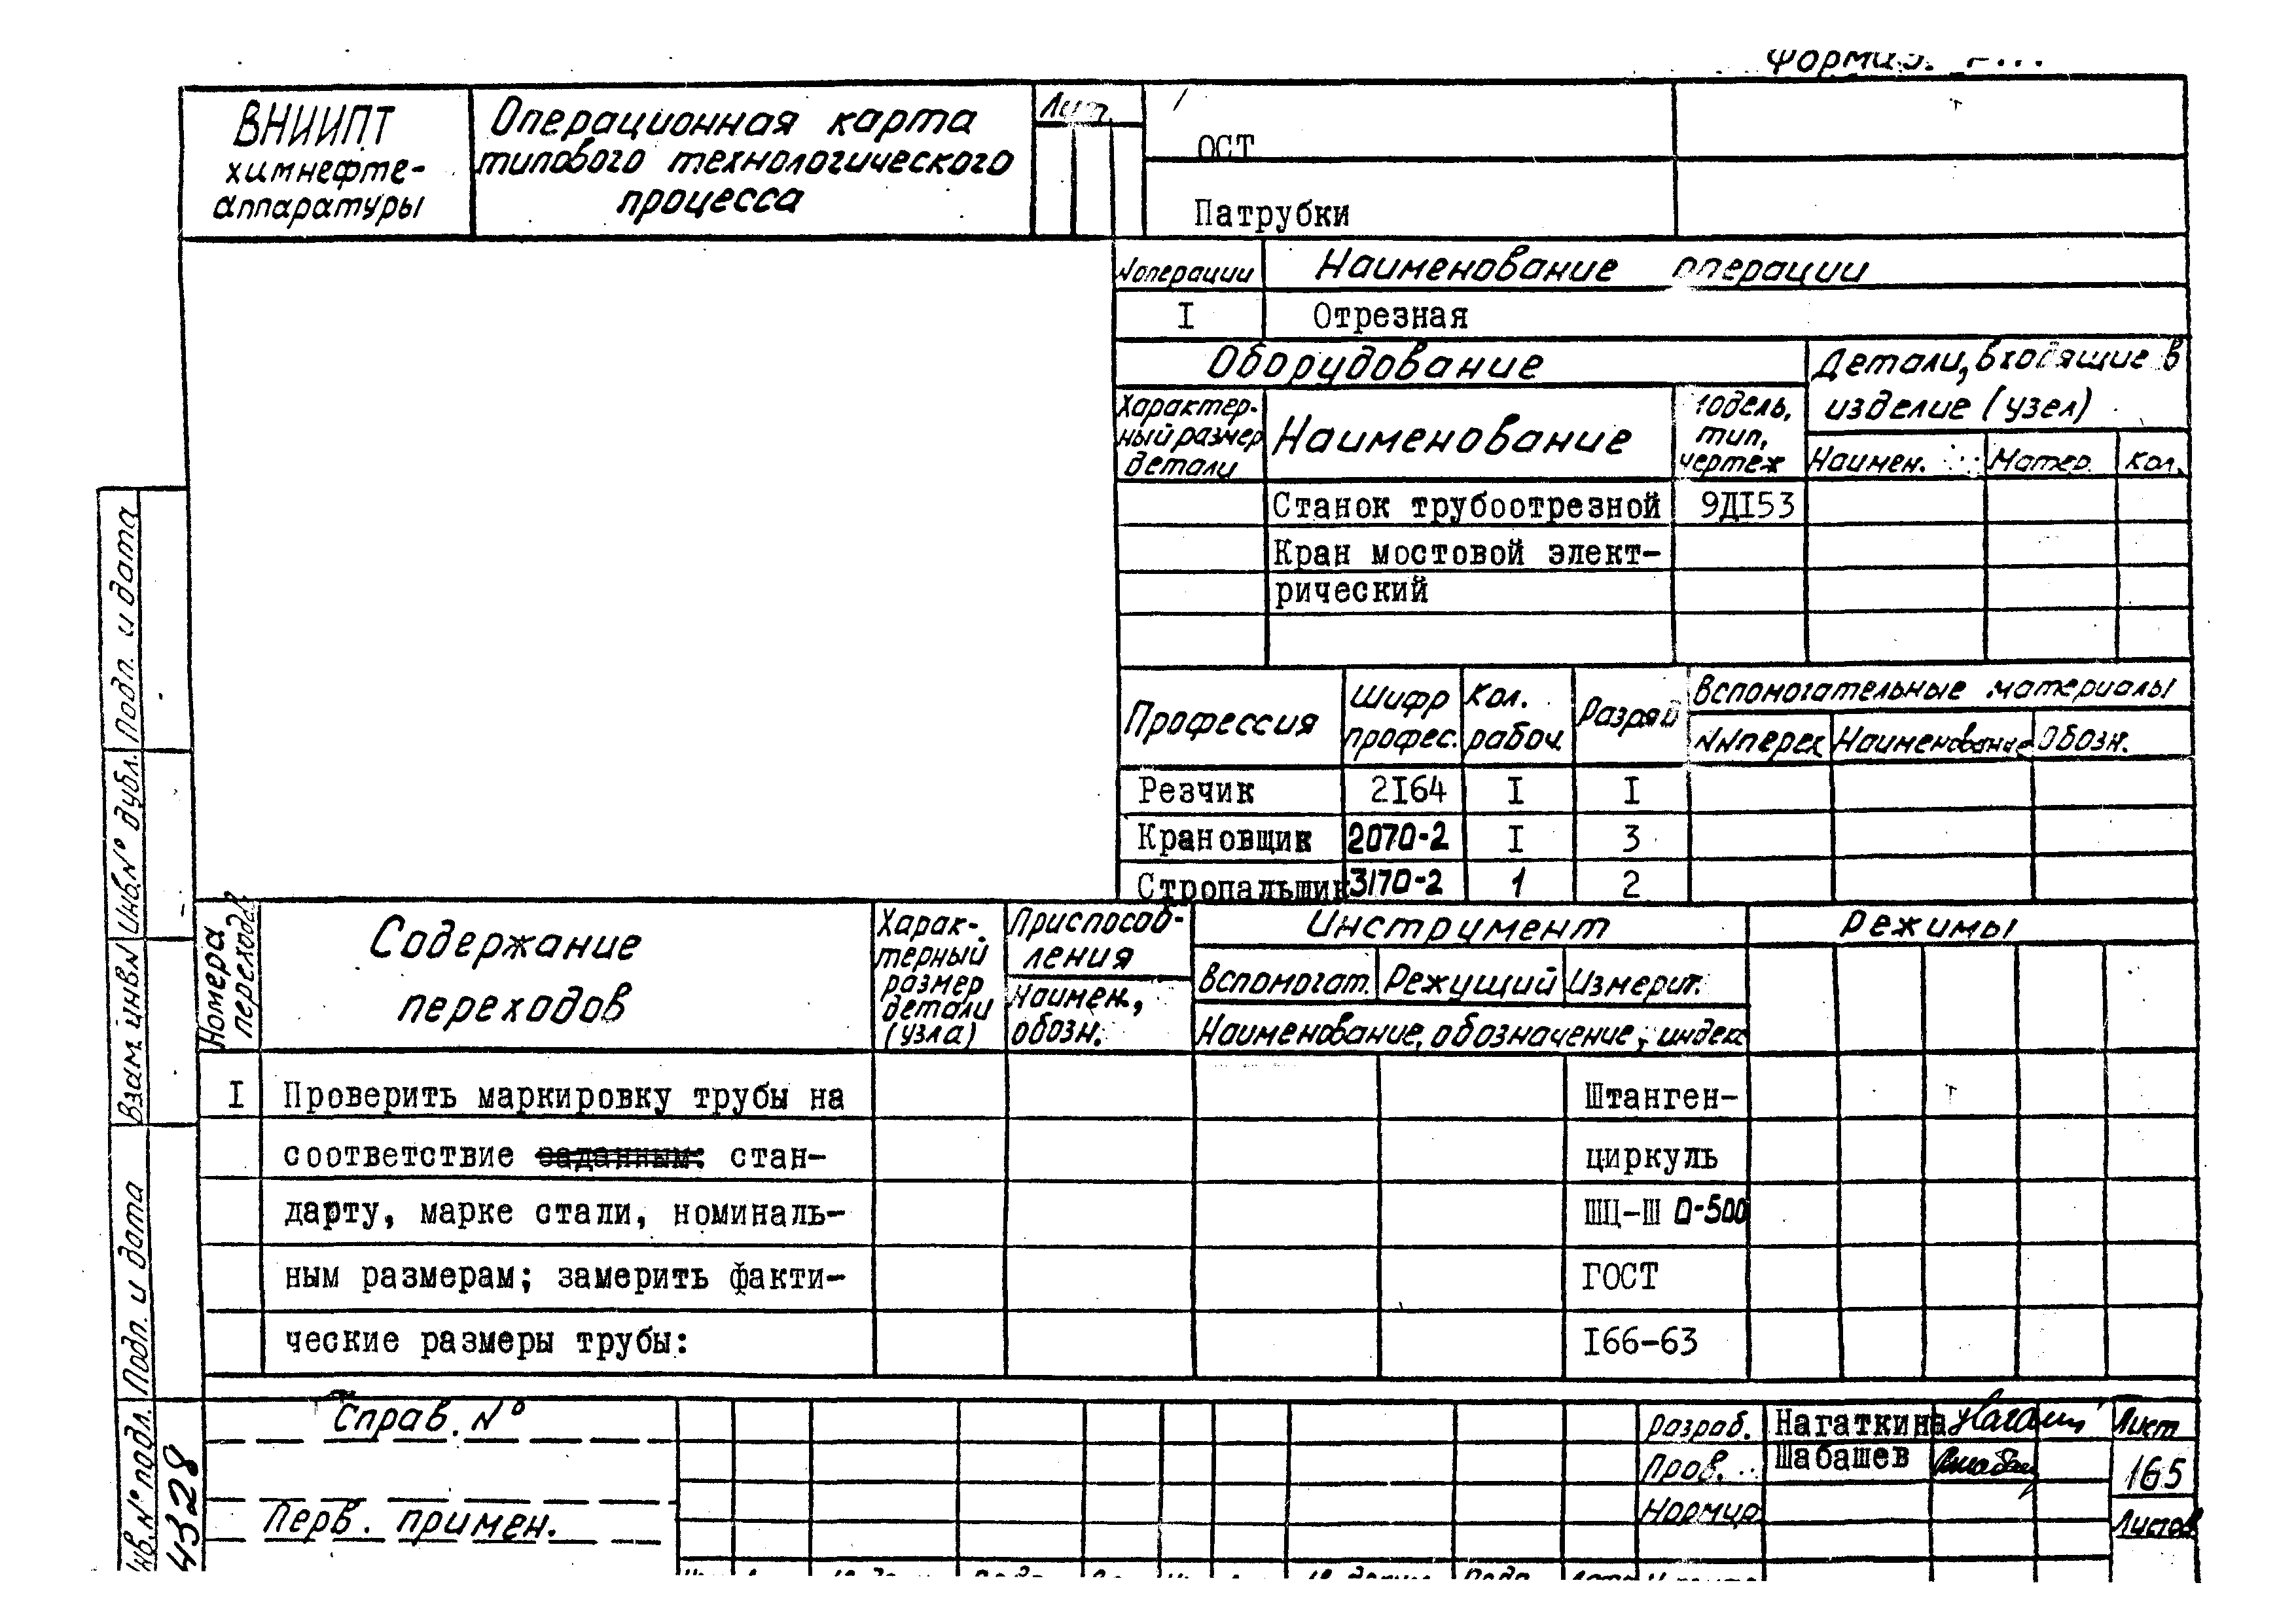 ВНИИПТ
химнефте-
аппаратуры
Операционная карта
типового технологического
процесса
Лит.
ОСТ
Патрубки
№операции Наименование операции
I Отрезная
Оборудование
Детали, входящие в
изделие (узел)
Характер-
ный размер
детали
Наименование
Модель,
тип,
чертеж
Наимен. Матер. Кол.
Станок трубоотрезной 9ДI53
Кран мостовой элект-
рический
Профессия
Шифр
профес.
Кол.
рабоч.
Разряд
Вспомогательные материалы
NNперех Наименование Обозн.
Резчик 2I64 I I
Крановщик 2070-2 I 3
Стропальщик 3170-2 1 2
Номера
переходов
Содержание
переходов
Харак-
терный
размер
детали
(узла)
Приспособ-
ления
Наимен.,
обозн.
Инструмент
Вспомогат. Режущий Измерит.
Наименование, обозначение, индекс
Режимы
I Проверить маркировку трубы на Штанген-
соответствие заданным: стан- циркуль
дарту, марке стали, номиналь- ШЦ-Ш 0-500
ным размерам; замерить факти- ГОСТ
ческие размеры трубы: I66-63
Подп. и дата
Инв.N° дубл.
Взам. инв.N
Подп. и дата
Инв.N° подл.
4328
Справ. N°
Перв. примен.
Разраб. Нагаткина
Пров. Шабашев
Нормир
Лист
165
Листов